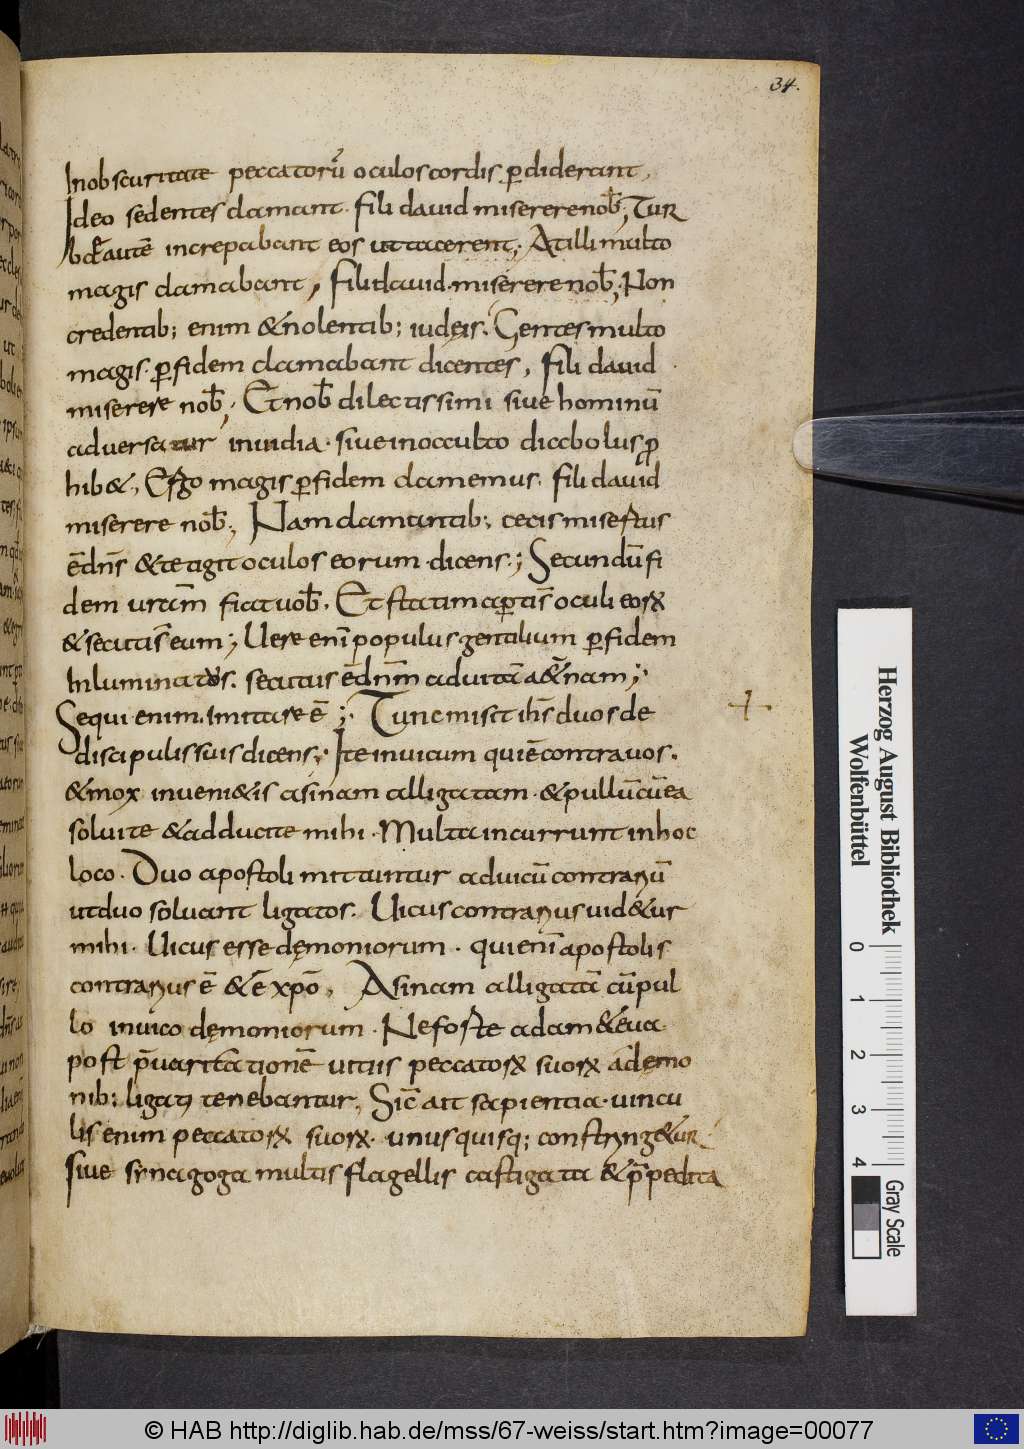 34.
Inobscuritate peccatorū oculoscordis ꝑdiderant,
Ideo sedentes clamant. fili dauid misererenob̄; Tur
bęautē increpabant eos ut tacerent; Atilli multo
magis clamabant, filidauid. misererenob̄; Non
credentib; enim &nolentib; iudęis. Gentesmulto
magis. ꝑfidem clamabant dicentes, fili dauid
miserere nob̄; Etnob̄ dilectissimi siue hominū
aduersatur inuidia. siueinocculto diabolus ꝓ
hib&, Ergo magis ꝑfidem clamemus. fili dauid
miserere nob̄; Namclamantib; cecis misertus
ēdn̄s &tetigit oculos eorum. dicens; Secundūfi
dem uram̄ fiat uob̄. Et statim aꝑtis̄ oculi eoꝝ
&secutis̄ eum; Uere enī populus gentilium ꝑfidem
Inluminatus. secutus ēdn̄m aduitā a&̄nam;
Sequi enim. imitare ē; Tunc misit ih̄s duos de
discipulis suis dicens; Ite inuicum quiēcontrauos.
&mox inueni&is asinam alligatam. &pullūcūea
soluite &adducite mihi. Multa incurrunt inhoc
loco. Duo apostoli mittuntur aduicū contrariū
utduo soluant ligatos. Uicus contrarius uid&ur
mihi. Uicus esse dęmoniorum. qui enī apostolis
contrarius ē &ē xp̄o, Asinam alligatā cū pul
lo inuico dęmoniorum. Neforte adam &eua
post p̄uaricationē uitiis peccatoꝝ suoꝝ adęmo
nib; ligati tenebantur, Sic̄ ait sapientia. uincu
lis enim peccatoꝝ suoꝝ. unusquisq; constring&ur
Siue synagoga multis flagellis castigata &p̄pedita
Herzog August Bibliothek
Wolfenbüttel
0 1 2 3 4
Gray Scale
© HAB http://diglib.hab.de/mss/67-weiss/start.htm?image=00077